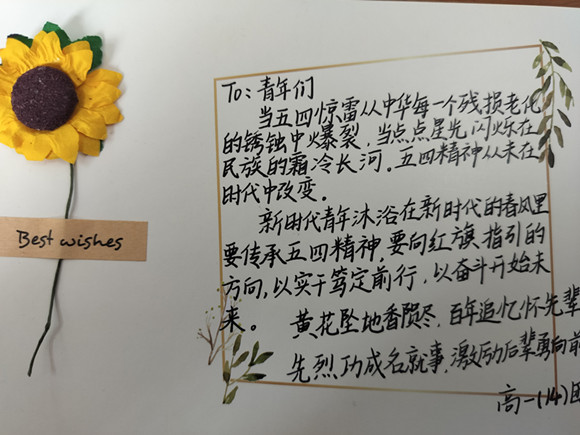 Best wishes
To：青年们
当五四惊雷从中华每一个残损老化
的锈蚀中爆裂，当点点星光闪烁在
民族的霜冷长河。五四精神从未在
时代中改变。
新时代青年沐浴在新时代的春风里
要传承五四精神，要向红旗指引的
方向，以实干笃定前行，以奋斗开始未
来。
黄花坠地香陨尽，百年追忆怀先辈
先烈功成名就事，激励后辈勇向前
高一(14)